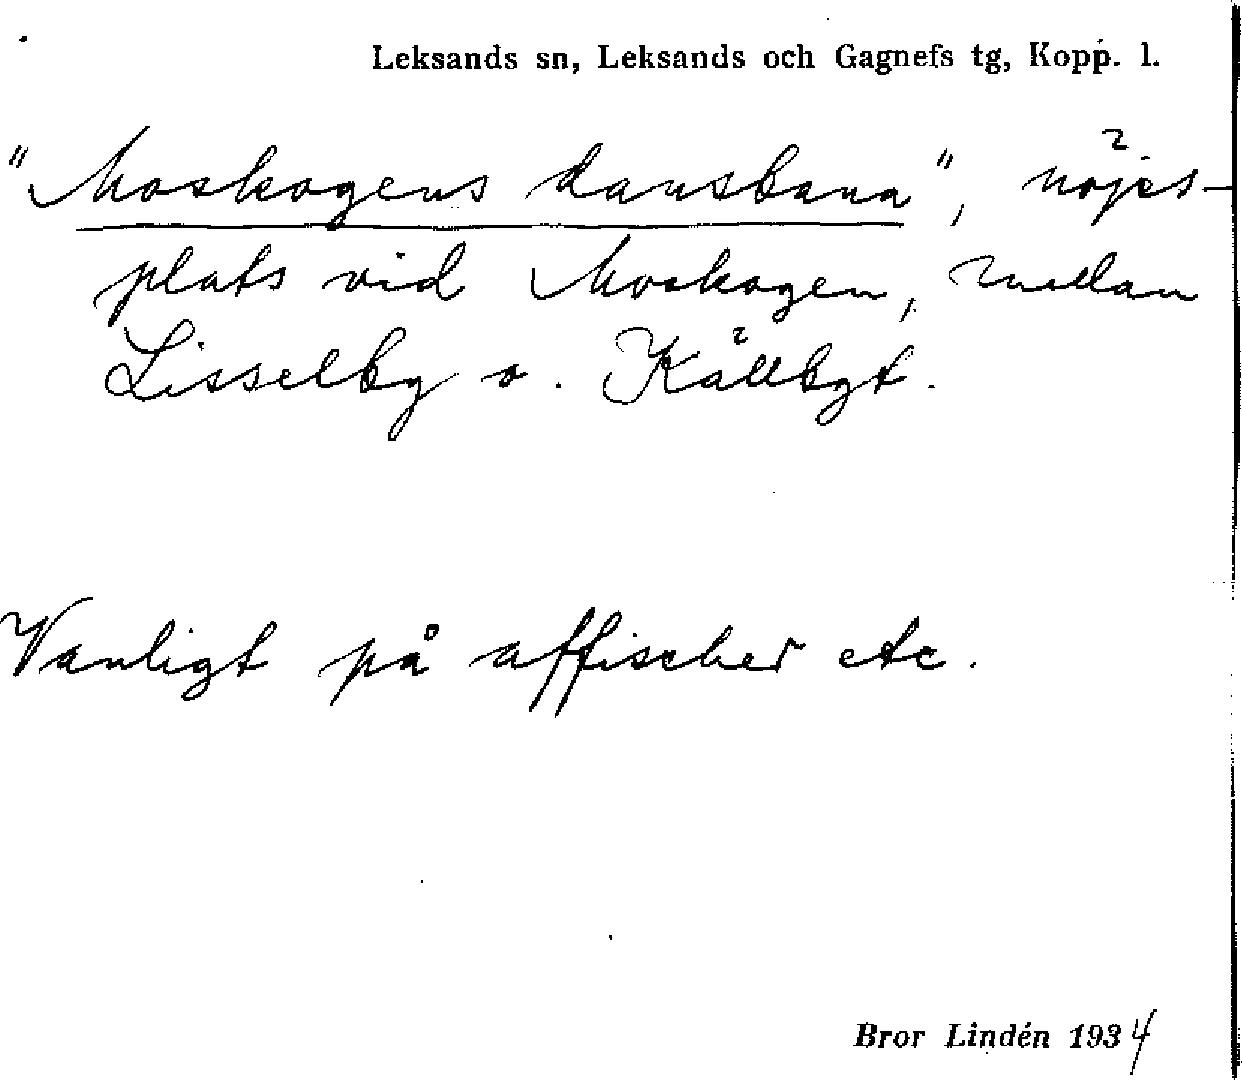 Leksands sn, Leksands och Gagnefs tg, Kopp. l.
"Moskogens dansbana", nöjes-
plats vid Moskogen, mellan
Lisselby o. Källbgt.
Vanligt på affischer etc.
Bror Lindén 1934